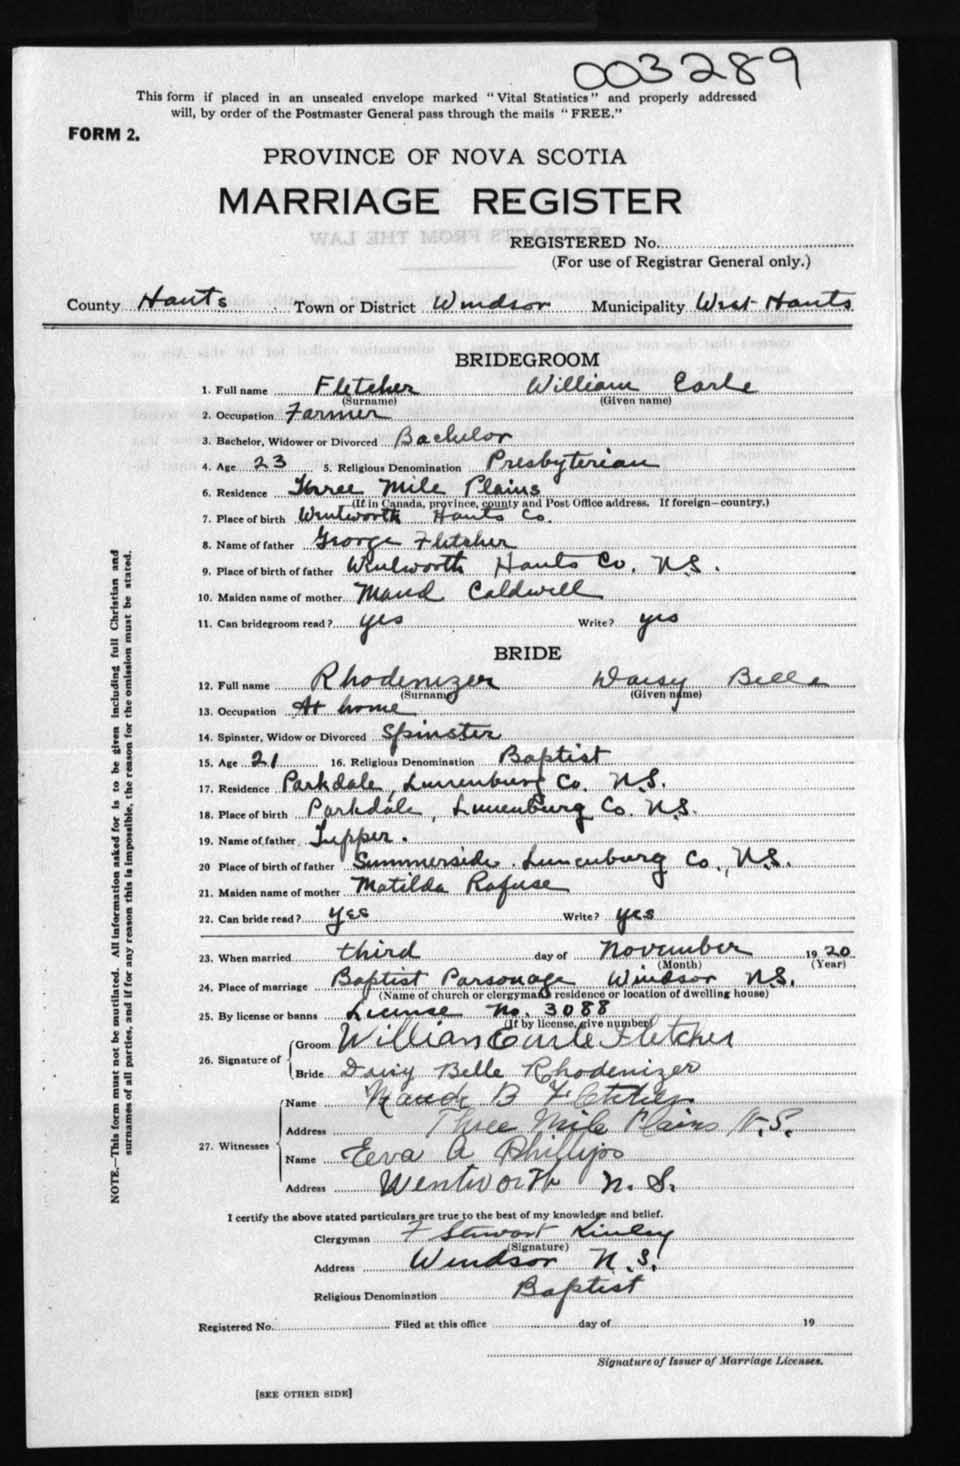 003289
This form if placed in an unsealed envelope marked "Vital Statistics" and properly addressed
will, by order of the Postmaster General pass through the mails "FREE."
FORM 2.
PROVINCE OF NOVA SCOTIA
MARRIAGE REGISTER
EXTRACTS FROM THE LAW
REGISTERED No.
(For use of Registrar General only.)
County Hants Town or District Windsor Municipality West Hants
BRIDEGROOM
1. Full name Fletcher William Earle
(Surname) (Given name)
2. Occupation Farmer
3. Bachelor, Widower or Divorced Bachelor
4. Age 23 5. Religious Denomination Presbyterian
6. Residence Three Mile Plains
(If in Canada, province, county and Post Office address. If foreign—country.)
7. Place of birth Wentworth Hants Co.
8. Name of father George Fletcher
9. Place of birth of father Wentworth Hants Co. N.S.
10. Maiden name of mother Maud Caldwell
11. Can bridegroom read? yes Write? yes
BRIDE
12. Full name Rhodenizer Daisy Belle
(Surname) (Given name)
13. Occupation At home
14. Spinster, Widow or Divorced Spinster
15. Age 21 16. Religious Denomination Baptist
17. Residence Parkdale, Lunenburg Co. N.S.
18. Place of birth Parkdale, Lunenburg Co. N.S.
19. Name of father Tupper.
20 Place of birth of father Summerside. Lunenburg Co., N.S.
21. Maiden name of mother Matilda Rafuse
22. Can bride read? yes Write? yes
23. When married third day of November 1920
(Month) (Year)
24. Place of marriage Baptist Parsonage Windsor N.S.
(Name of church or clergyman's residence or location of dwelling house)
25. By license or banns License No. 3088
(If by license, give number)
26. Signature of Groom William Earle Fletcher
Bride Daisy Belle Rhodenizer
27. Witnesses Name Maude B Fletcher
Address Three Mile Plains N.S.
Name Eeva A Phillips
Address Wentworth N.S.
I certify the above stated particulars are true to the best of my knowledge and belief.
Clergyman F Stewart Kinley
(Signature)
Address Windsor N.S.
Religious Denomination Baptist
Registered No. Filed at this office day of 19
Signature of Issuer of Marriage Licenses.
[SEE OTHER SIDE]
NOTE.—This form must not be mutilated. All information asked for is to be given including full Christian and
surnames of all parties, and if for any reason this is impossible, the reason for the omission must be stated.